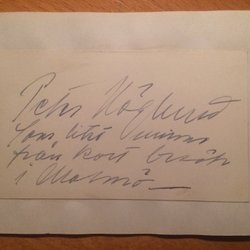 Peter Höglund
Som litet minne
från kort besök
i Malmö